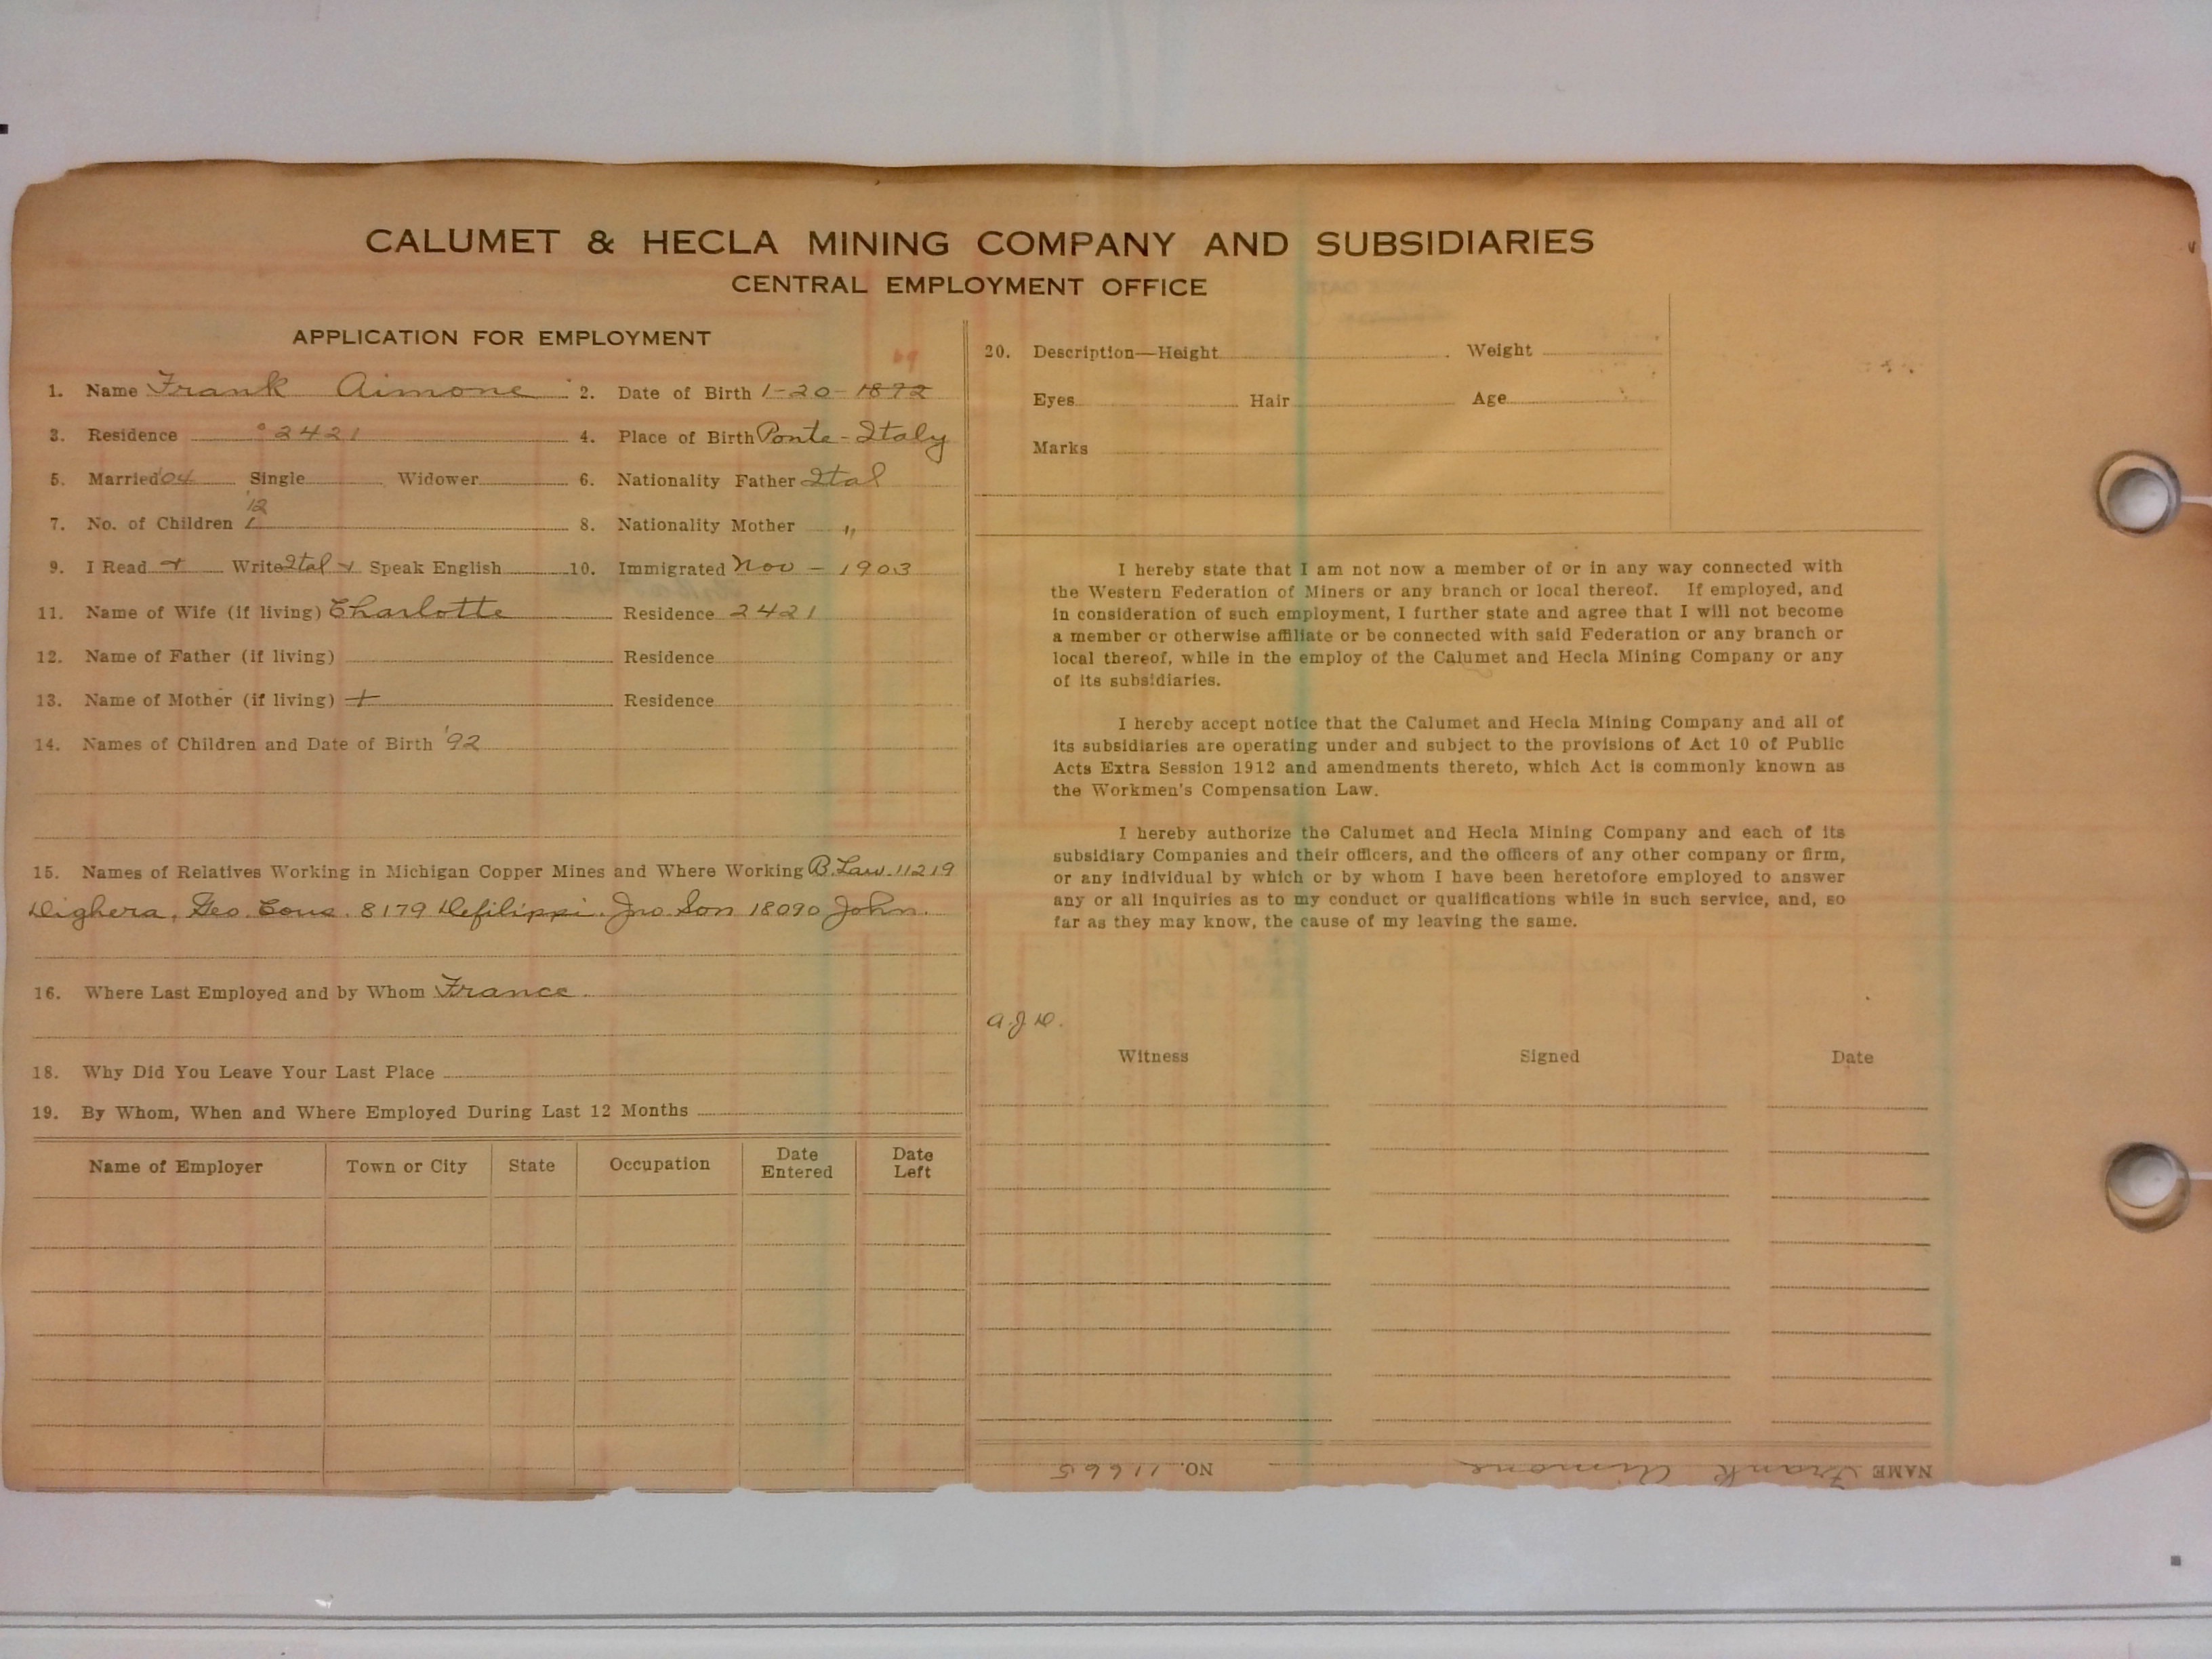 CALUMET & HECLA MINING COMPANY AND SUBSIDIARIES
CENTRAL EMPLOYMENT OFFICE
APPLICATION FOR EMPLOYMENT
69
1. Name Frank Aimone 2. Date of Birth 1-20-1872
3. Residence 2421 4. Place of Birth Ponte-Italy
5. Married '04 Single Widower 6. Nationality Father Ital
'12
7. No. of Children 1 8. Nationality Mother "
9. I Read + Write Ital + Speak English 10. Immigrated Nov - 1903
11. Name of Wife (if living) Charlotte Residence 2421
12. Name of Father (if living) Residence
13. Name of Mother (if living) + Residence
14. Names of Children and Date of Birth '92
15. Names of Relatives Working in Michigan Copper Mines and Where Working B. Law. 11219
Dighera, Geo. Cous. 8179 Defilippi. Jno. Son 18090 John.
16. Where Last Employed and by Whom France
18. Why Did You Leave Your Last Place
19. By Whom, When and Where Employed During Last 12 Months
Name of Employer Town or City State Occupation Date Entered Date Left
20. Description—Height Weight
Eyes Hair Age
Marks
I hereby state that I am not now a member of or in any way connected with
the Western Federation of Miners or any branch or local thereof. If employed, and
in consideration of such employment, I further state and agree that I will not become
a member or otherwise affiliate or be connected with said Federation or any branch or
local thereof, while in the employ of the Calumet and Hecla Mining Company or any
of its subsidiaries.
I hereby accept notice that the Calumet and Hecla Mining Company and all of
its subsidiaries are operating under and subject to the provisions of Act 10 of Public
Acts Extra Session 1912 and amendments thereto, which Act is commonly known as
the Workmen's Compensation Law.
I hereby authorize the Calumet and Hecla Mining Company and each of its
subsidiary Companies and their officers, and the officers of any other company or firm,
or any individual by which or by whom I have been heretofore employed to answer
any or all inquiries as to my conduct or qualifications while in such service, and, so
far as they may know, the cause of my leaving the same.
A.J.D.
Witness Signed Date
NAME Frank Aimone NO. 11665